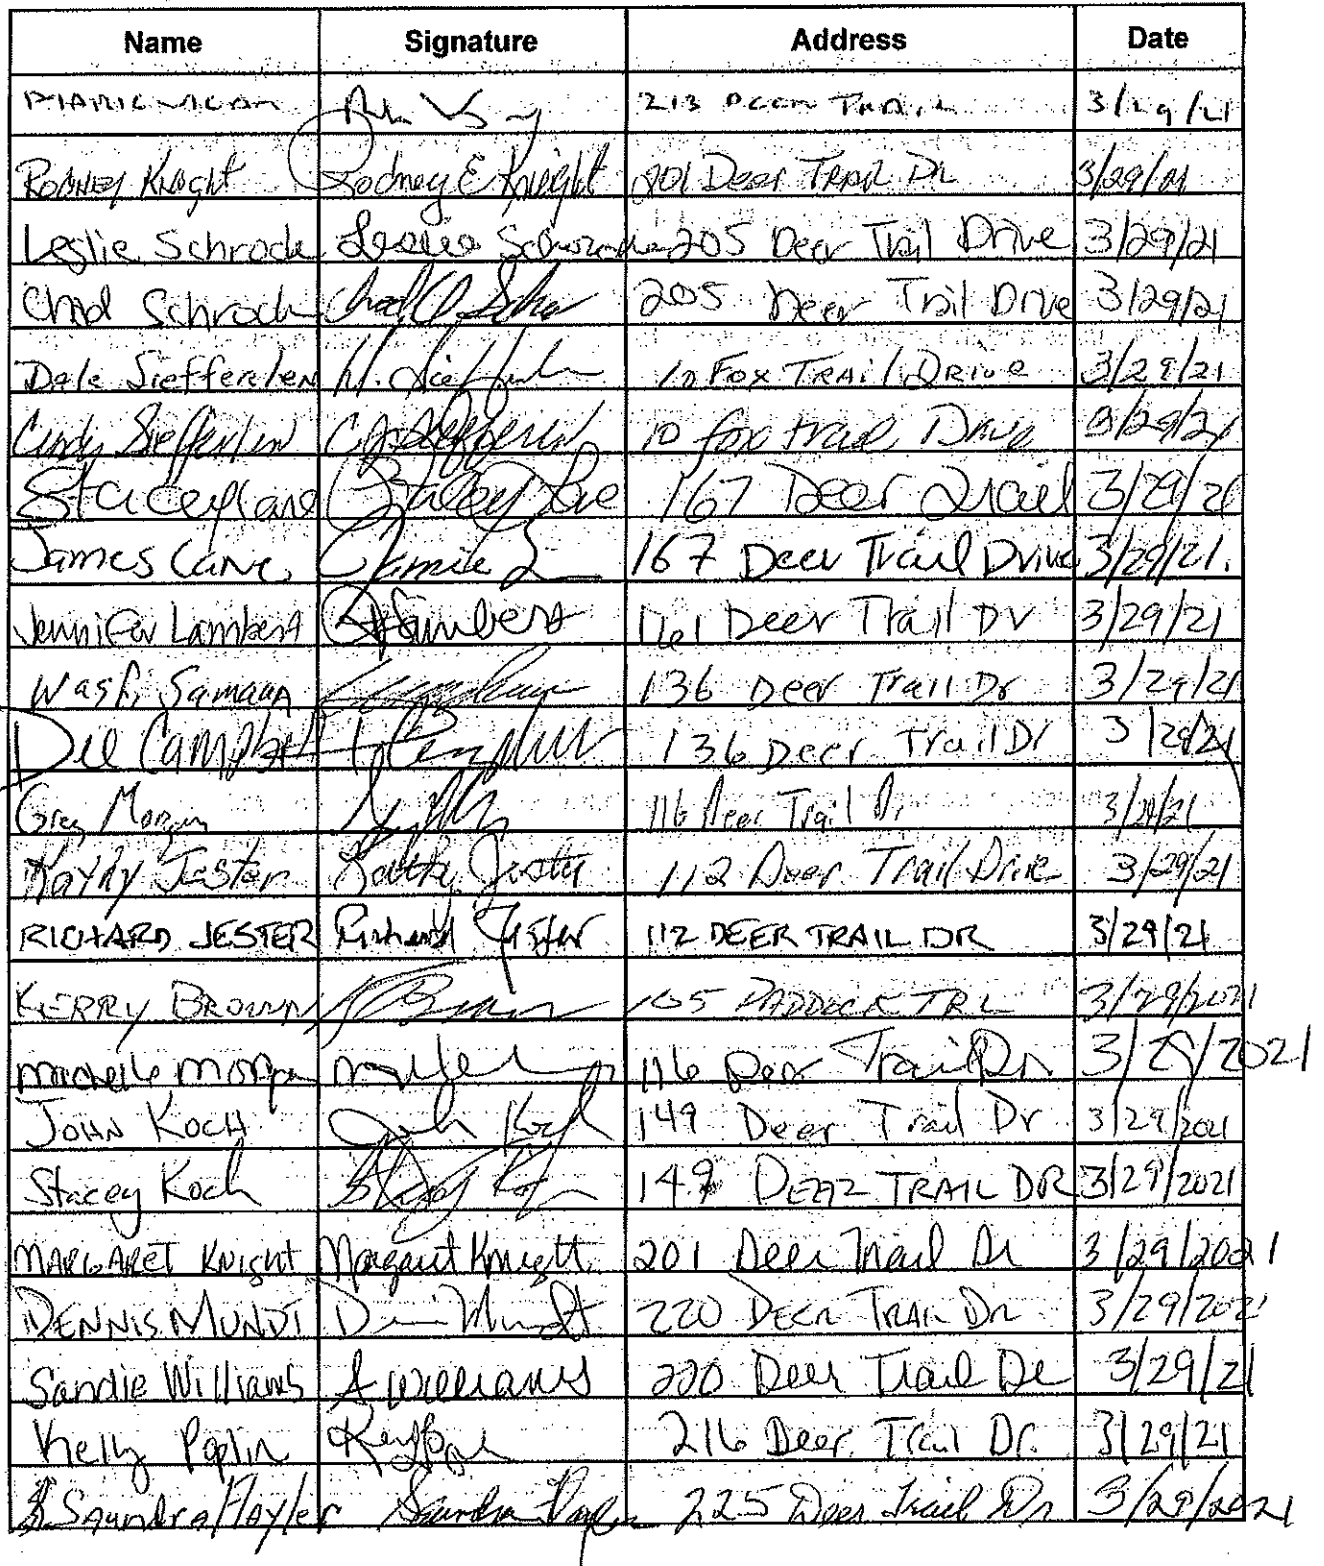 Name Signature Address Date
213 Deer Trail 3/29/21
Rodney Knight Rodney E Knight 201 Deer Trail Dr 3/29/21
Leslie Schrock Leslie Schrock 205 Deer Trail Drive 3/29/21
Chad Schrock 205 Deer Trail Drive 3/29/21
Dale Siefferlen 10 Fox Trail Drive 3/29/21
Cindy Siefferlen 10 fox trail Drive 3/29/21
Stacey Lane Stacey Lane 167 Deer Trail 3/29/21
James Lane Jamie L 167 Deer Trail Drive 3/29/21.
Jennifer Lambert Lambert 161 Deer Trail Dr 3/29/21
Samaan 136 Deer Trail Dr 3/29/21
Dee Campbell 136 Deer Trail Dr 3/29/21
Greg Morgan 116 Deer Trail Dr 3/29/21
Kathy Jester Kathy Jester 112 Deer Trail Drive 3/29/21
RICHARD JESTER Richard Jester 112 DEER TRAIL DR 3/29/21
KERRY BROWN 105 PADDOCK TRL 3/29/2021
Michelle Morgan 116 Deer Trail Dr 3/29/2021
JOHN KOCH John Koch 149 Deer Trail Dr 3/29/2021
Stacey Koch Stacey Koch 149 DEER TRAIL DR 3/29/2021
MARGARET KNIGHT Margaret Knight 201 Deer Trail Dr 3/29/2021
DENNIS MUNDT Dennis Mundt 220 DEER TRAIL DR 3/29/2021
Sandie Williams S Williams 220 Deer Trail Dr 3/29/21
Kelly Poplin 216 Deer Trail Dr. 3/29/21
Saundra Saundra 225 Deer Trail Dr 3/29/2021